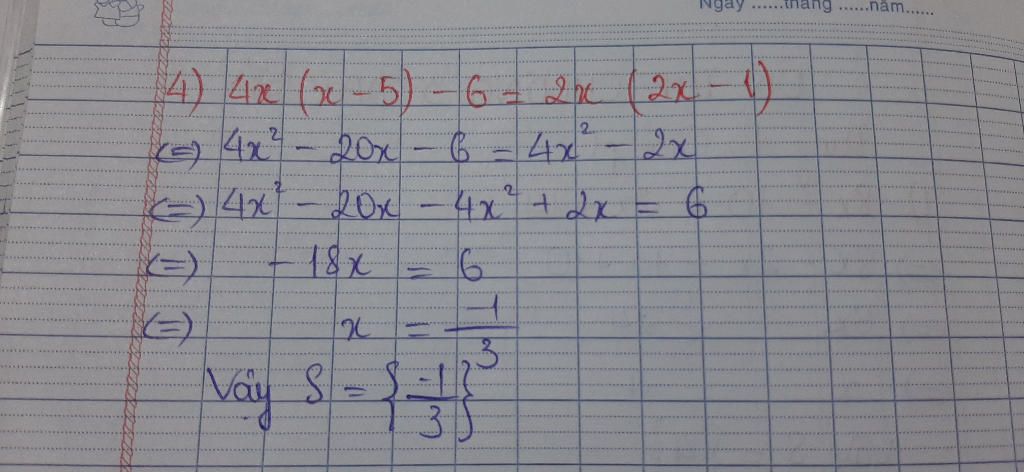 Ngày ......tháng ......năm......
4) 4x (x - 5) - 6 = 2x (2x - 1)
(=) 4x² - 20x - 6 = 4x² - 2x
(=) 4x² - 20x - 4x² + 2x = 6
(=) - 18x = 6
(=) x = -1/3
Vậy S = {-1/3}